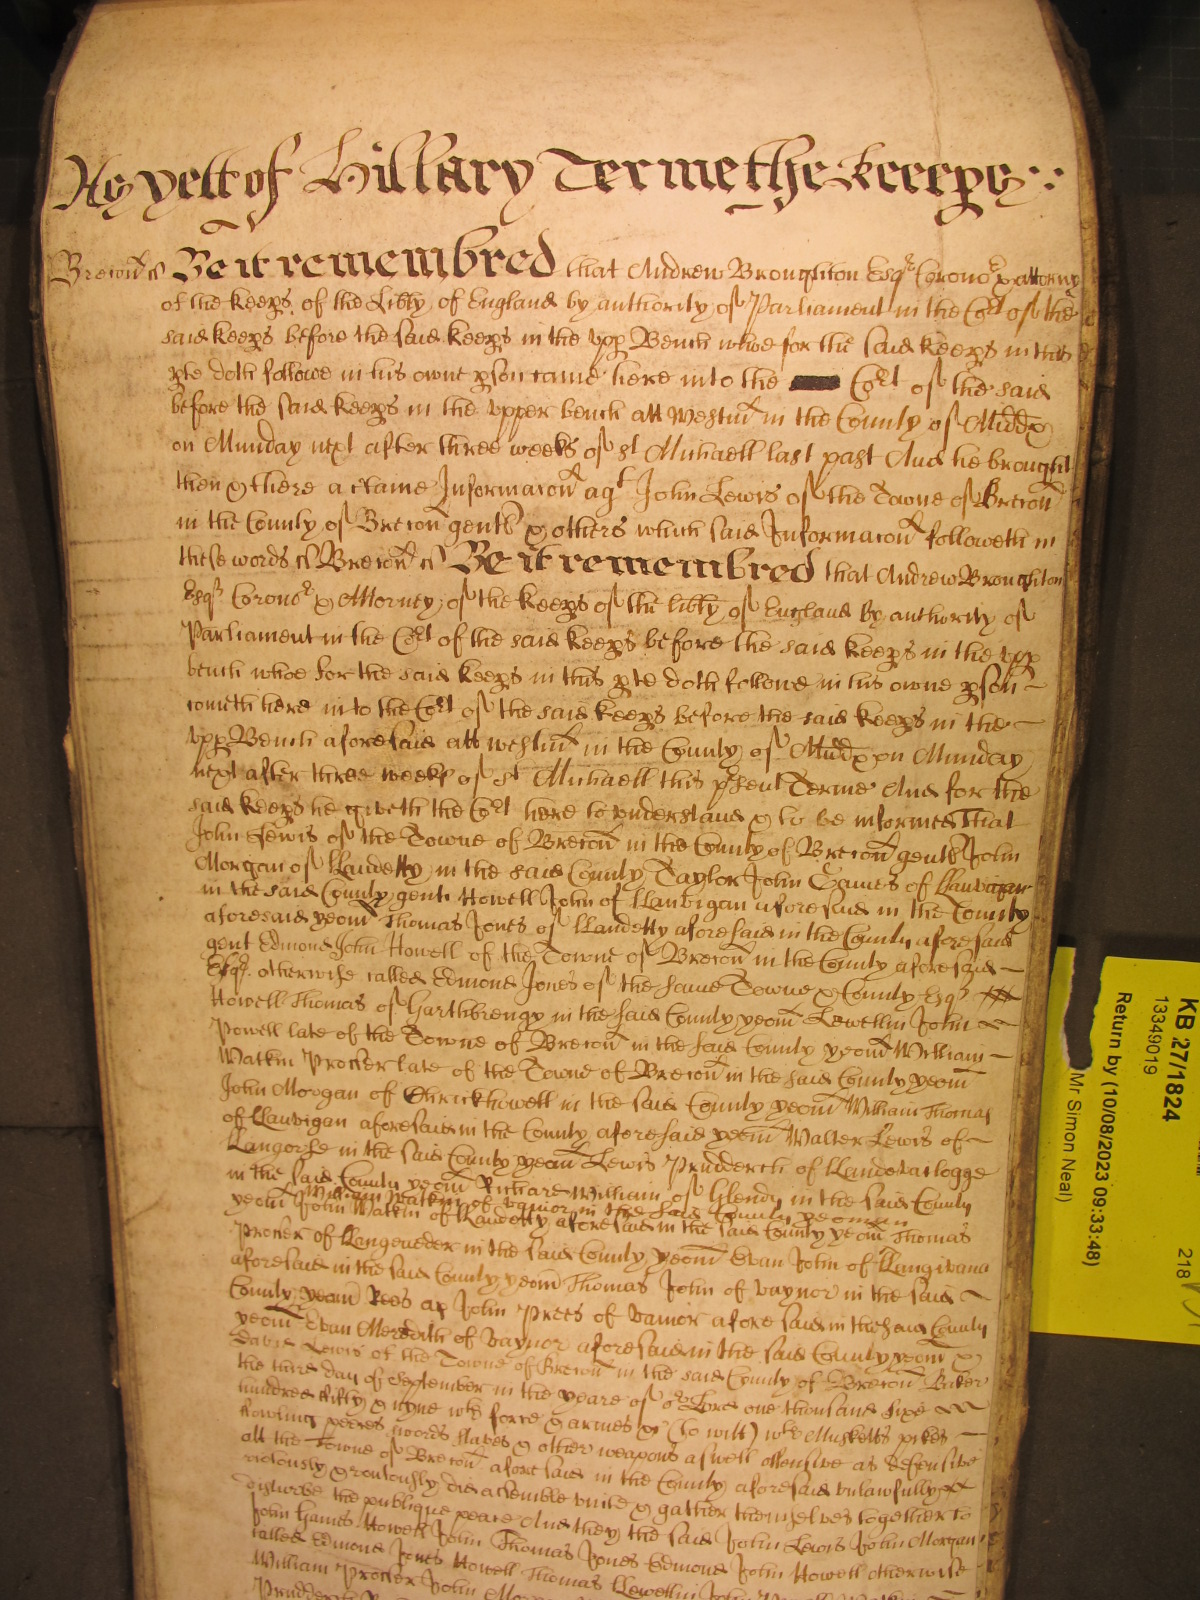 As yett of Hillary Terme the Keeps
Brecon ss Be it remembred that Andrew Broughton Esqr Corono & attorny
of the keeps of the Libty of England by authority of Parliament in the Cort of the
said keeps before the said keeps in the upp Bench whoe for the said keeps in this
pte doth followe in his owne pson came here into the Cort of the said
before the said keeps in the upper bench att Westm in the County of Middx
on Munday next after three weeks of st Michaell last past And he brought
then & there a certaine Informacon agt John Lewis of the Towne of Brecon
in the County of Brecon gentl & others which said Informacon followeth in
these words ss Brecon ss Be it remembred that Andrew Broughton
Esqr Corono & Attorney of the keeps of the libty of England by authority of
Parliament in the Cort of the said keeps before the said keeps in the upp
bench whoe for the said keeps in this pte doth followe in his owne pson
cometh here into the Cort of the said keeps before the said keeps in the
upp Bench aforesaid att westm in the County of Middx on Munday
next after three weeks of st Michaell this psent Terme And for the
said keeps he giveth the Cort here to understand & to be informed That
John Lewis of the Towne of Brecon in the County of Brecon gentl John
Morgan of Llandetty in the said County Taylor John Games of Llanvigan
in the said County gent Howell John of Llanvigan aforesaid in the County
aforesaid yeom Thomas Jones of Llandetty aforesaid in the County aforesaid
gent Edmond John Howell of the Towne of Brecon in the County aforesaid
Esqr otherwise called Edmond Jones of the same Towne & County Esqr
Howell Thomas of Garthbrengy in the said County yeom Lewellin John
Powell late of the Towne of Brecon in the said County yeom William
Watkin Procter late of the Towne of Brecon in the said County yeom
John Morgan of Chrickhowell in the said County yeom William Thomas
of Llanvigan aforesaid in the County aforesaid yeom Walter Lewis of
Llangorse in the said County yeom Lewis Prudderch of Llandevailogge
in the said County yeom Richard William of Glendy in the said County
William Watkin of vainor in the said County yeoman
yeom John Watkin of Llandetty aforesaid in the said County yeom Thomas
Procter of Llangeneder in the said County yeom Evan John of Llangivana
aforesaid in the said County yeom Thomas John of vaynor in the said
County yeom Rees ap John Prees of vainor aforesaid in the said County
yeom Evan Meredith of vaynor aforesaid in the said County yeom &
David Lewis of the Towne of Brecon in the said County of Brecon Baker
the third day of September in the yeare of or Lord one thousand sixe
hundred fifty & nyne wth force & armes & (to witt) wth Musketts pikes
fowling peeces swords staves & other weapons aswell offensive as defensive
att the Towne of Brecon aforesaid in the County aforesaid unlawfully
riotously & routously did assemble unite & gather themselves together to
disturbe the publique peace And they the said John Lewis John Morgan
John Games Howell John Thomas Jones Edmond John Howell otherwise
called Edmond Jones Howell Thomas Llewellin John Powell
William Procter John
Prudderch
KB 27/1824
13349019
Return by (10/08/2023 09:33:48)
Mr Simon Neal)
218